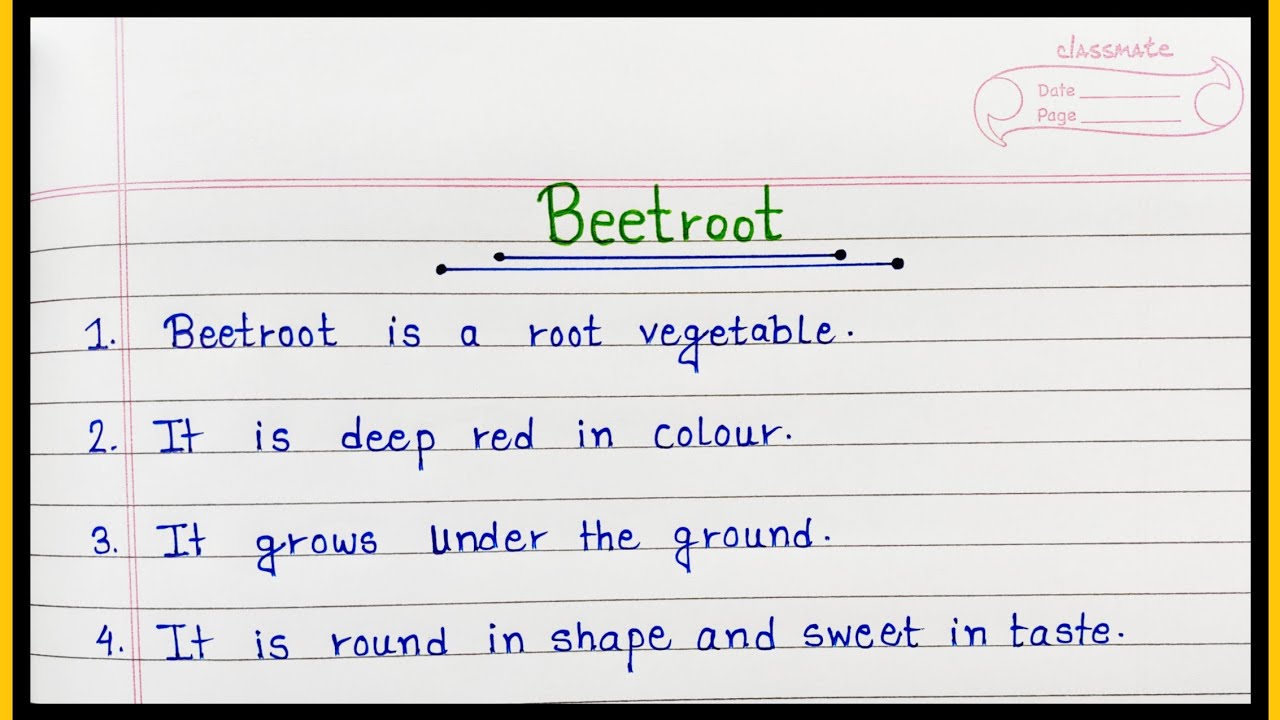 classmate
Date
Page
Beetroot
1. Beetroot is a root vegetable.
2. It is deep red in colour.
3. It grows under the ground.
4. It is round in shape and sweet in taste.